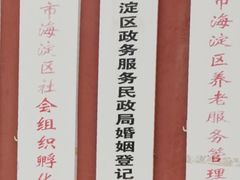 市海淀区社会组织孵化
淀区政务服务民政局婚姻登记
市海淀区养老服务管理